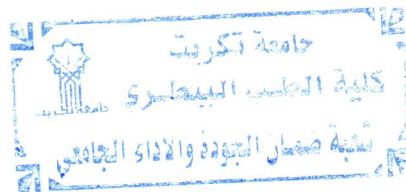 جامعة تكريت
كلية الطب البيطري
جامعة تكريت
شعبة ضمان الجودة والاداء الجامعي